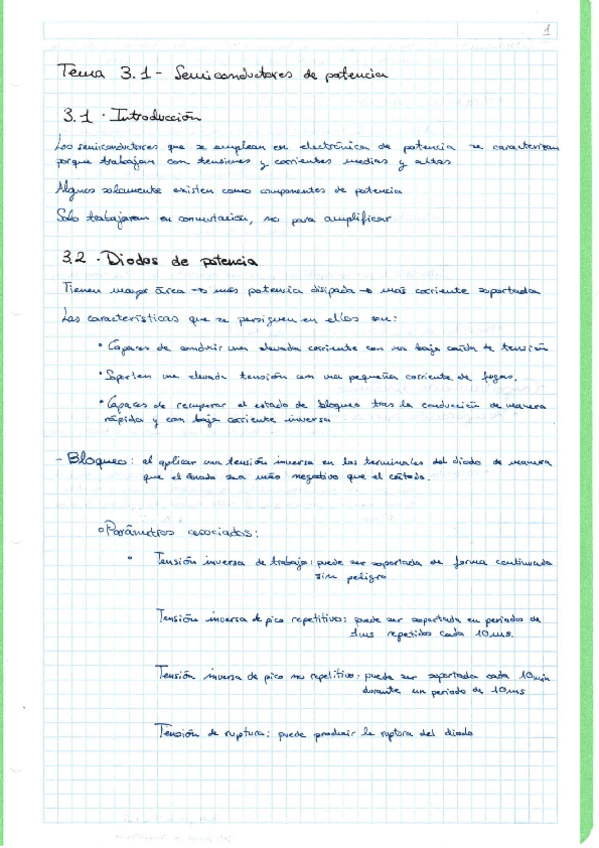 1
Tema 3.1 - Semiconductores de potencia
3.1 · Introducción
Los semiconductores que se emplean en electrónica de potencia se caracterizan
porque trabajan con tensiones y corrientes medias y altas
Algunos solamente existen como componentes de potencia
Solo trabajaran en conmutación, no para amplificar
3.2 · Diodos de potencia
Tienen mayor área → más potencia disipada → más corriente soportada
Las características que se persiguen en ellos son:
• Capaces de conducir una elevada corriente con una baja caída de tensión
• Soporten una elevada tensión con una pequeña corriente de fugas.
• Capaces de recuperar el estado de bloqueo tras la conducción de manera
rápida y con baja corriente inversa
- Bloqueo: al aplicar una tensión inversa en los terminales del diodo de manera
que el ánodo sea más negativo que el cátodo.
o Parámetros asociados:
• Tensión inversa de trabajo: puede ser soportada de forma continuada
sin peligro
Tensión inversa de pico repetitivo: puede ser soportada en periodos de
1ms repetidos cada 10ms.
Tensión inversa de pico no repetitivo: puede ser soportada cada 10min
durante un periodo de 10ms
Tensión de ruptura: puede producir la ruptura del diodo